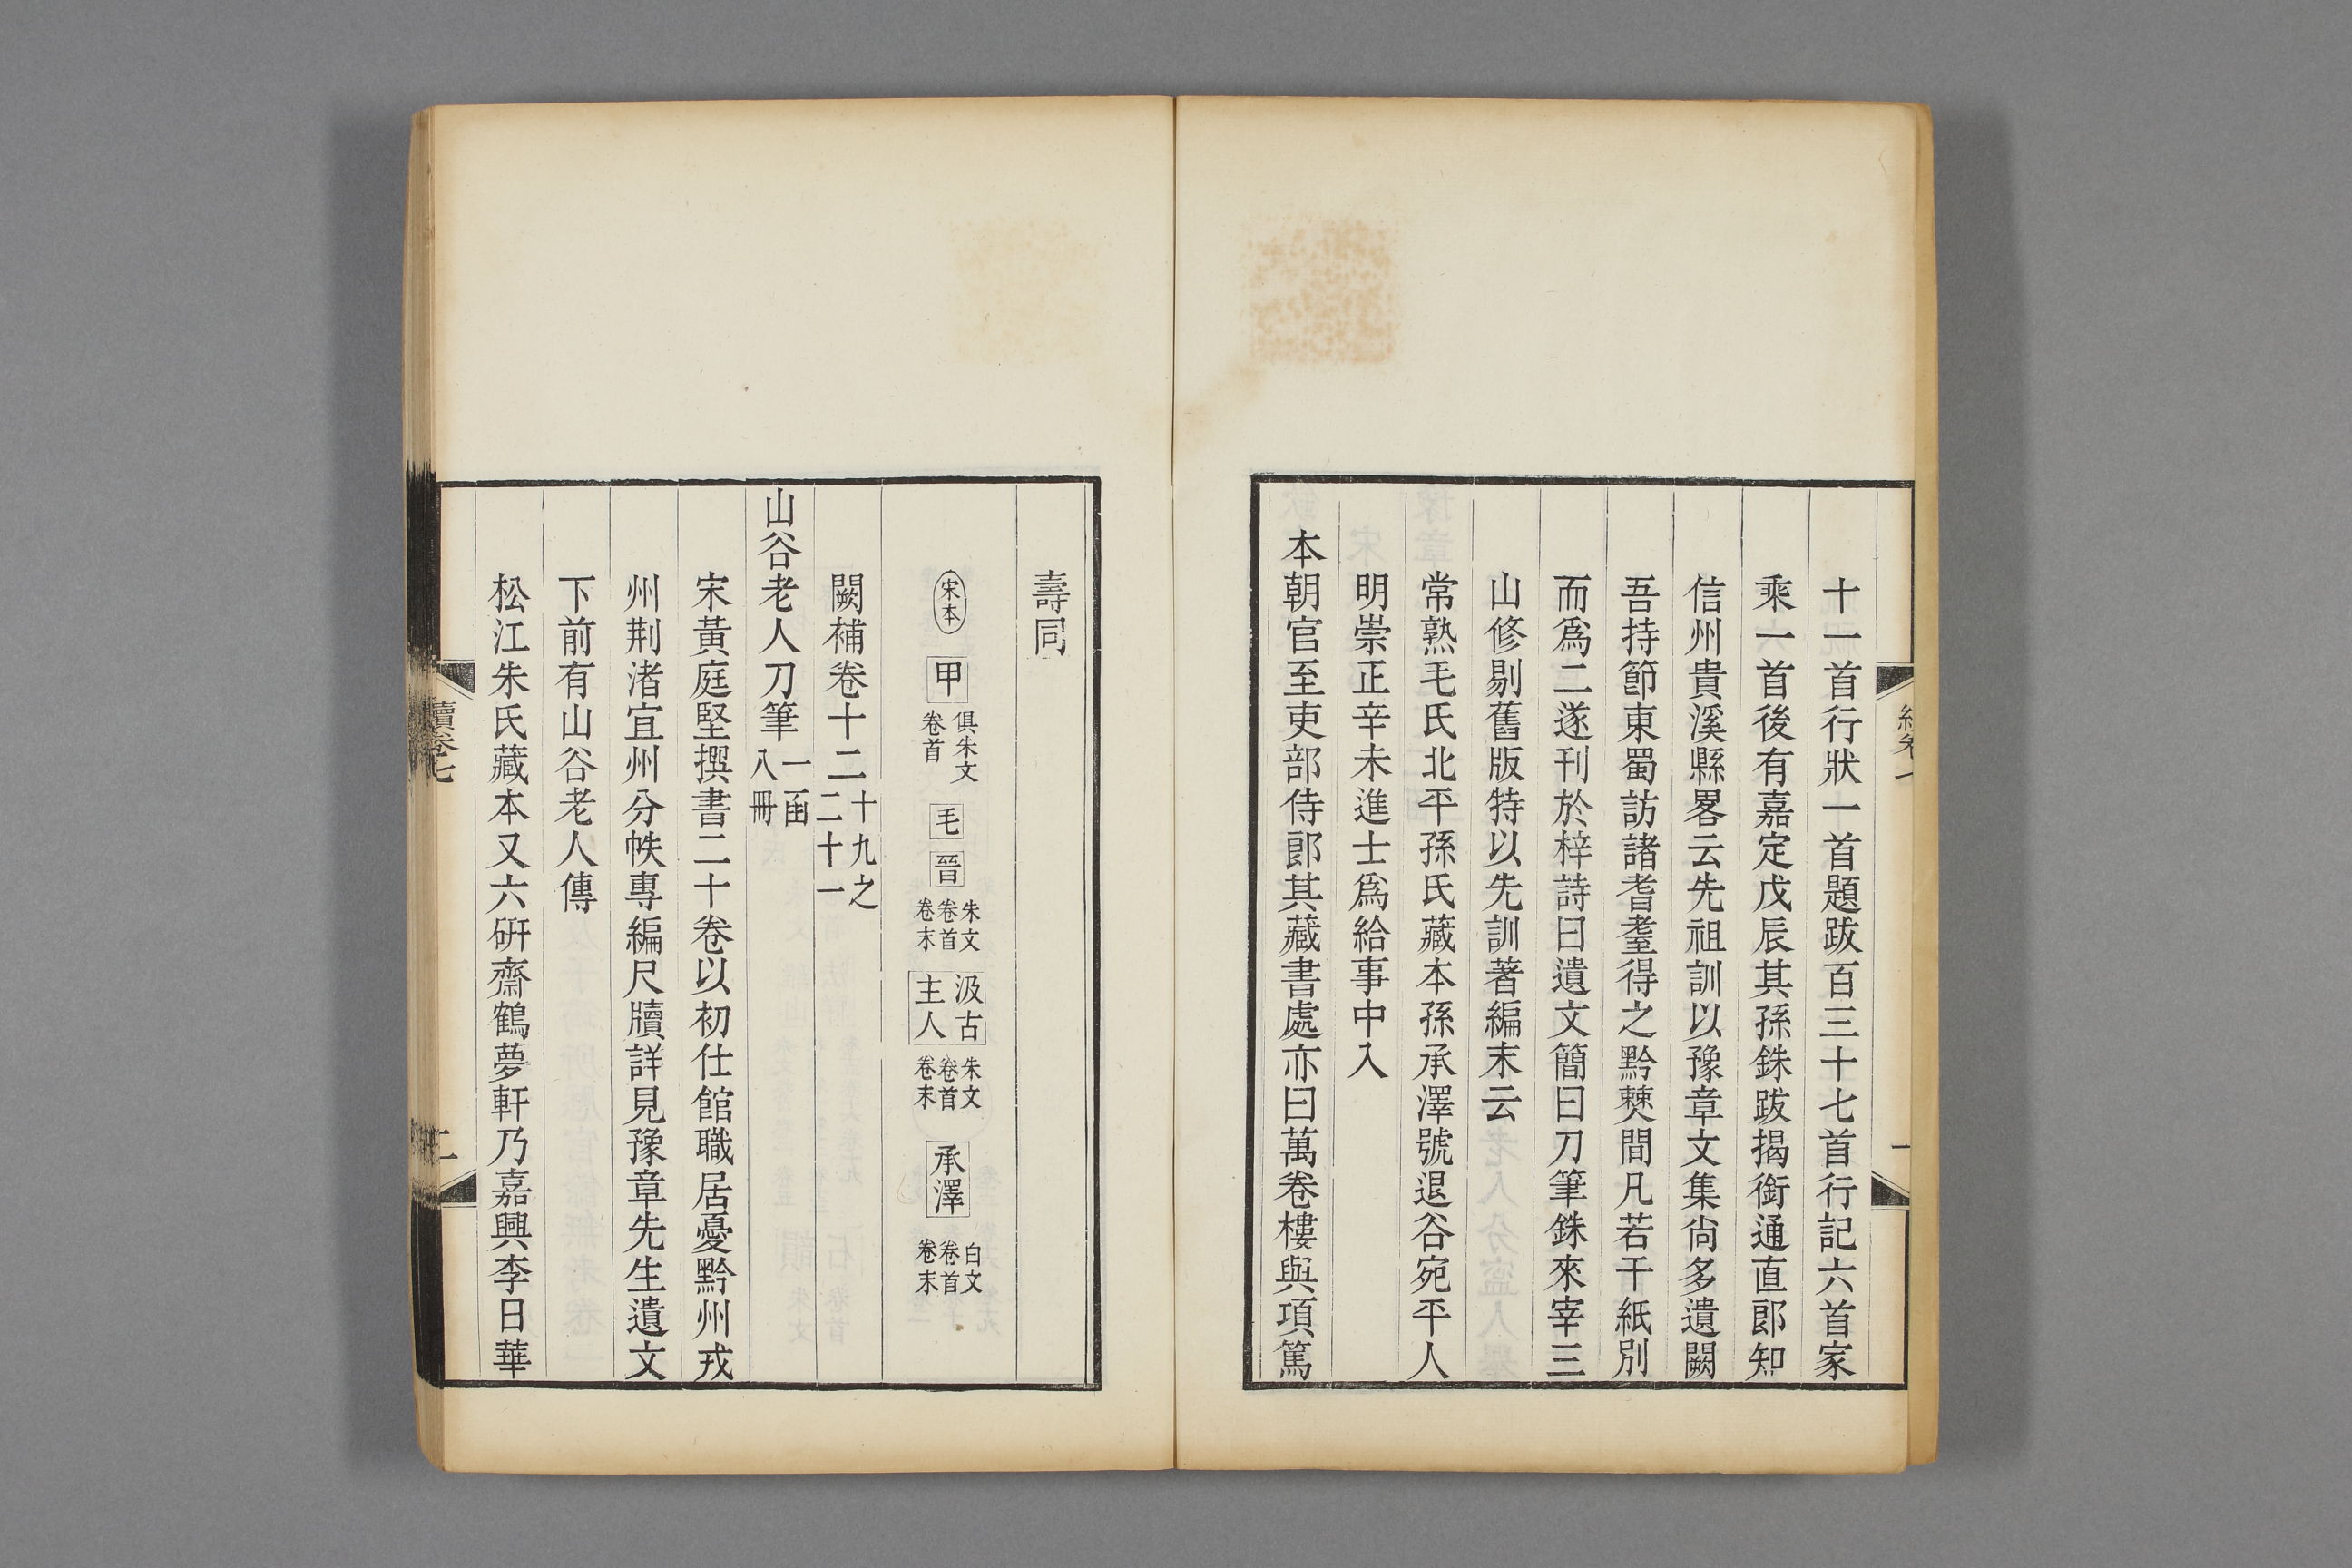 十一首行狀一首題跋百三十七首行記六首家
乘一首後有嘉定戊辰其孫銖跋揭銜通直郎知
信州貴溪縣畧云先祖訓以豫章文集尙多遺闕
吾持節東蜀訪諸耆耋得之黔僰間凡若干紙別
而爲二遂刊於梓詩曰遺文簡曰刀筆銖來宰三
山修剔舊版特以先訓著編末云
常熟毛氏北平孫氏藏本孫承澤號退谷宛平人
明崇正辛未進士爲給事中入
本朝官至吏部侍郎其藏書處亦曰萬卷樓與項篤
壽同
宋本 甲 俱朱文卷首 毛 晉 朱文卷首卷末 汲古主人 朱文卷首卷末 承澤 白文卷首卷末
闕補卷十二 十九之二十一
山谷老人刀筆 一函八冊
宋黃庭堅撰書二十卷以初仕館職居憂黔州戎
州荆渚宜州分帙專編尺牘詳見豫章先生遺文
下前有山谷老人傳
松江朱氏藏本又六硏齋鶴夢軒乃嘉興李日華
續卷七
二